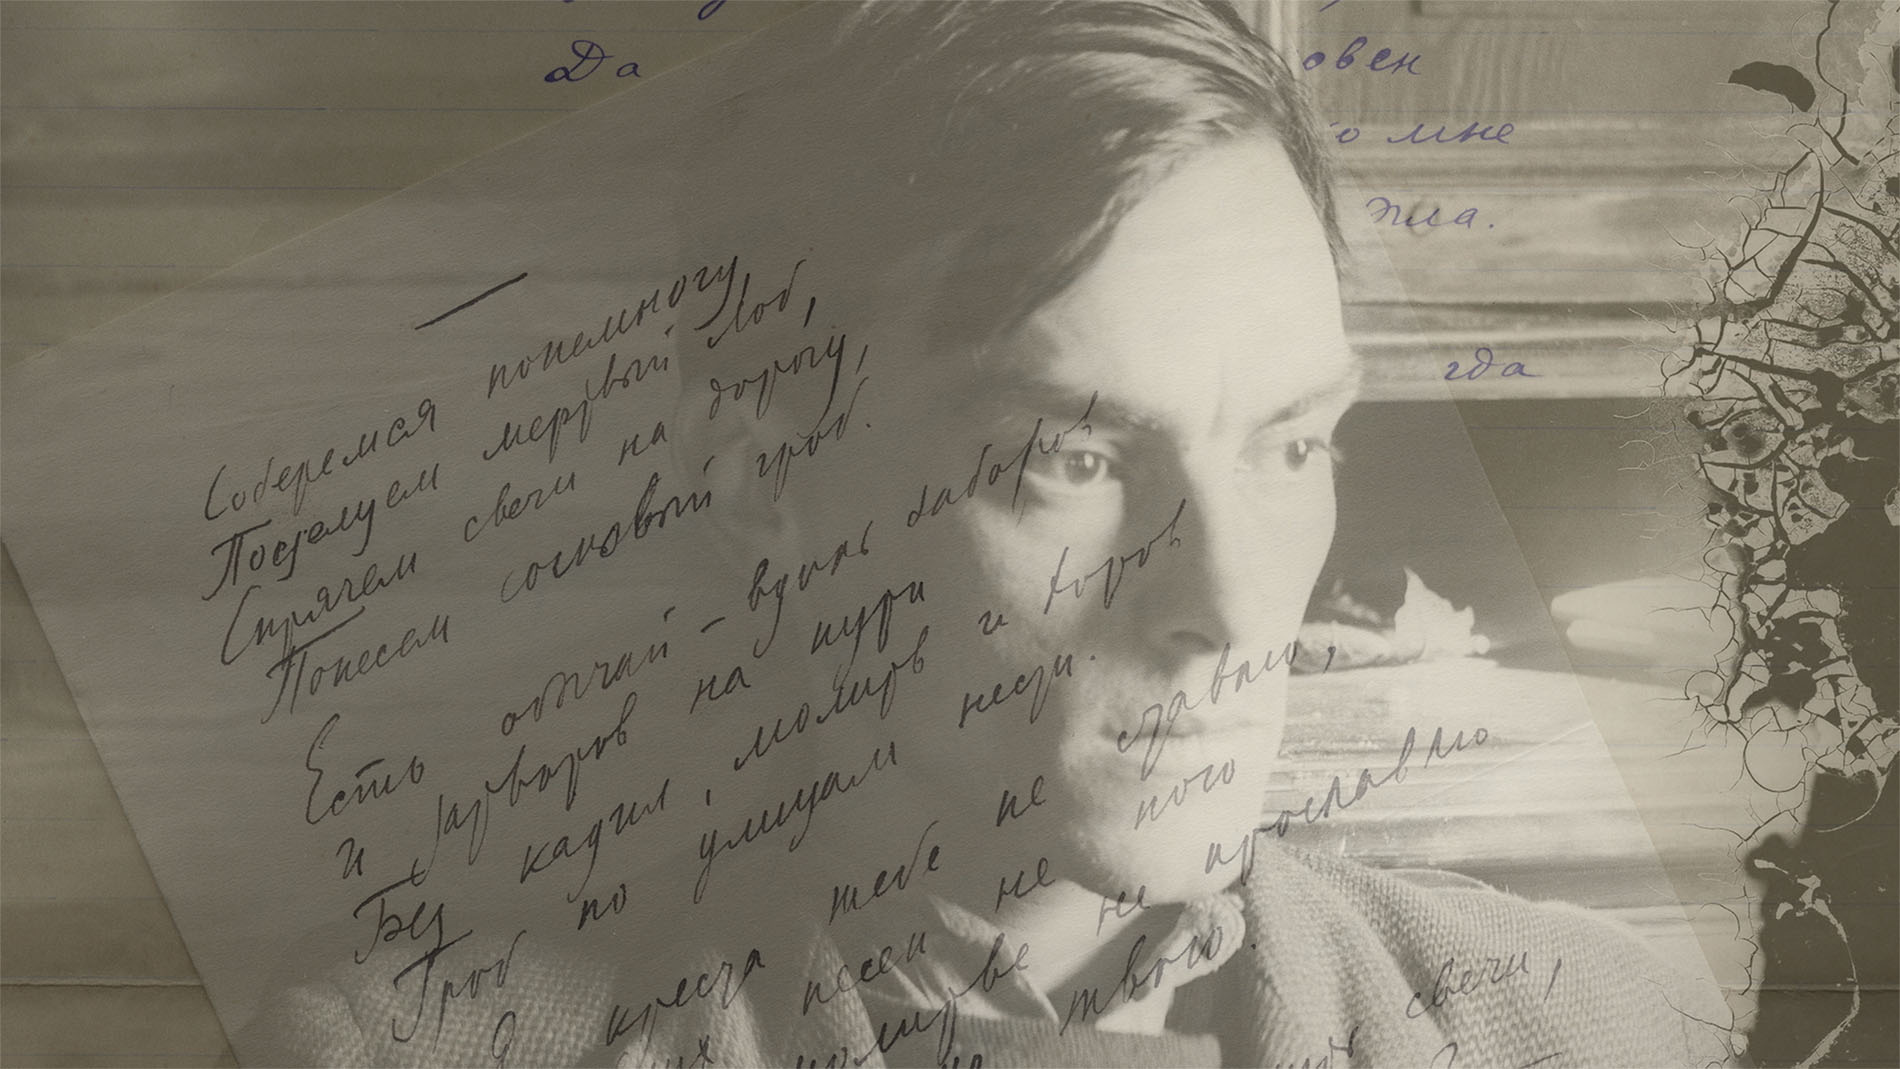 Да
овен
о мне
гда
Соберемся понемногу,
Поцелуем мертвый лоб,
Спрячем свечи на дорогу,
Понесем сосновый гроб.
Есть обычай – вдоль заборов
И затворов на пути
Без кадил, молитв и хоров
Гроб по улицам нести.
Я креста тебе не ставлю,
песен не пою
молитве не прославлю
твою.
свечи,